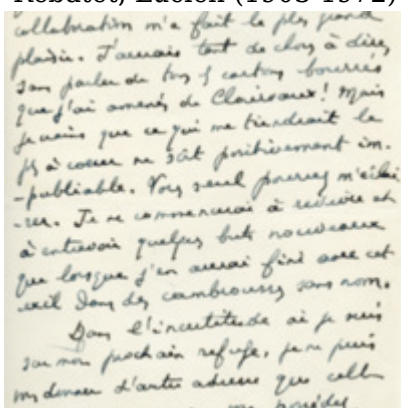 Rebatet, Lucien (1903-1972)
collaboration m'a fait le plus grand
plaisir. J'aurais tant de choses à dire,
sans parler de tous les cartons bourrés
que j'ai amenés de Clairvaux! Mais
je crains que ce qui me tiendrait le
plus à coeur ne soit positivement im-
-publiable. Vous seul pourrez m'éclai-
-rer. Je ne commencerai à revivre et
à entrevoir quelques buts nouveaux
que lorsque j'en aurai fini avec cet
exil dans des cambrousses sans nom.
Dans l'incertitude où je suis
sur mon prochain refuge, je ne puis
vous donner d'autre adresse que celle